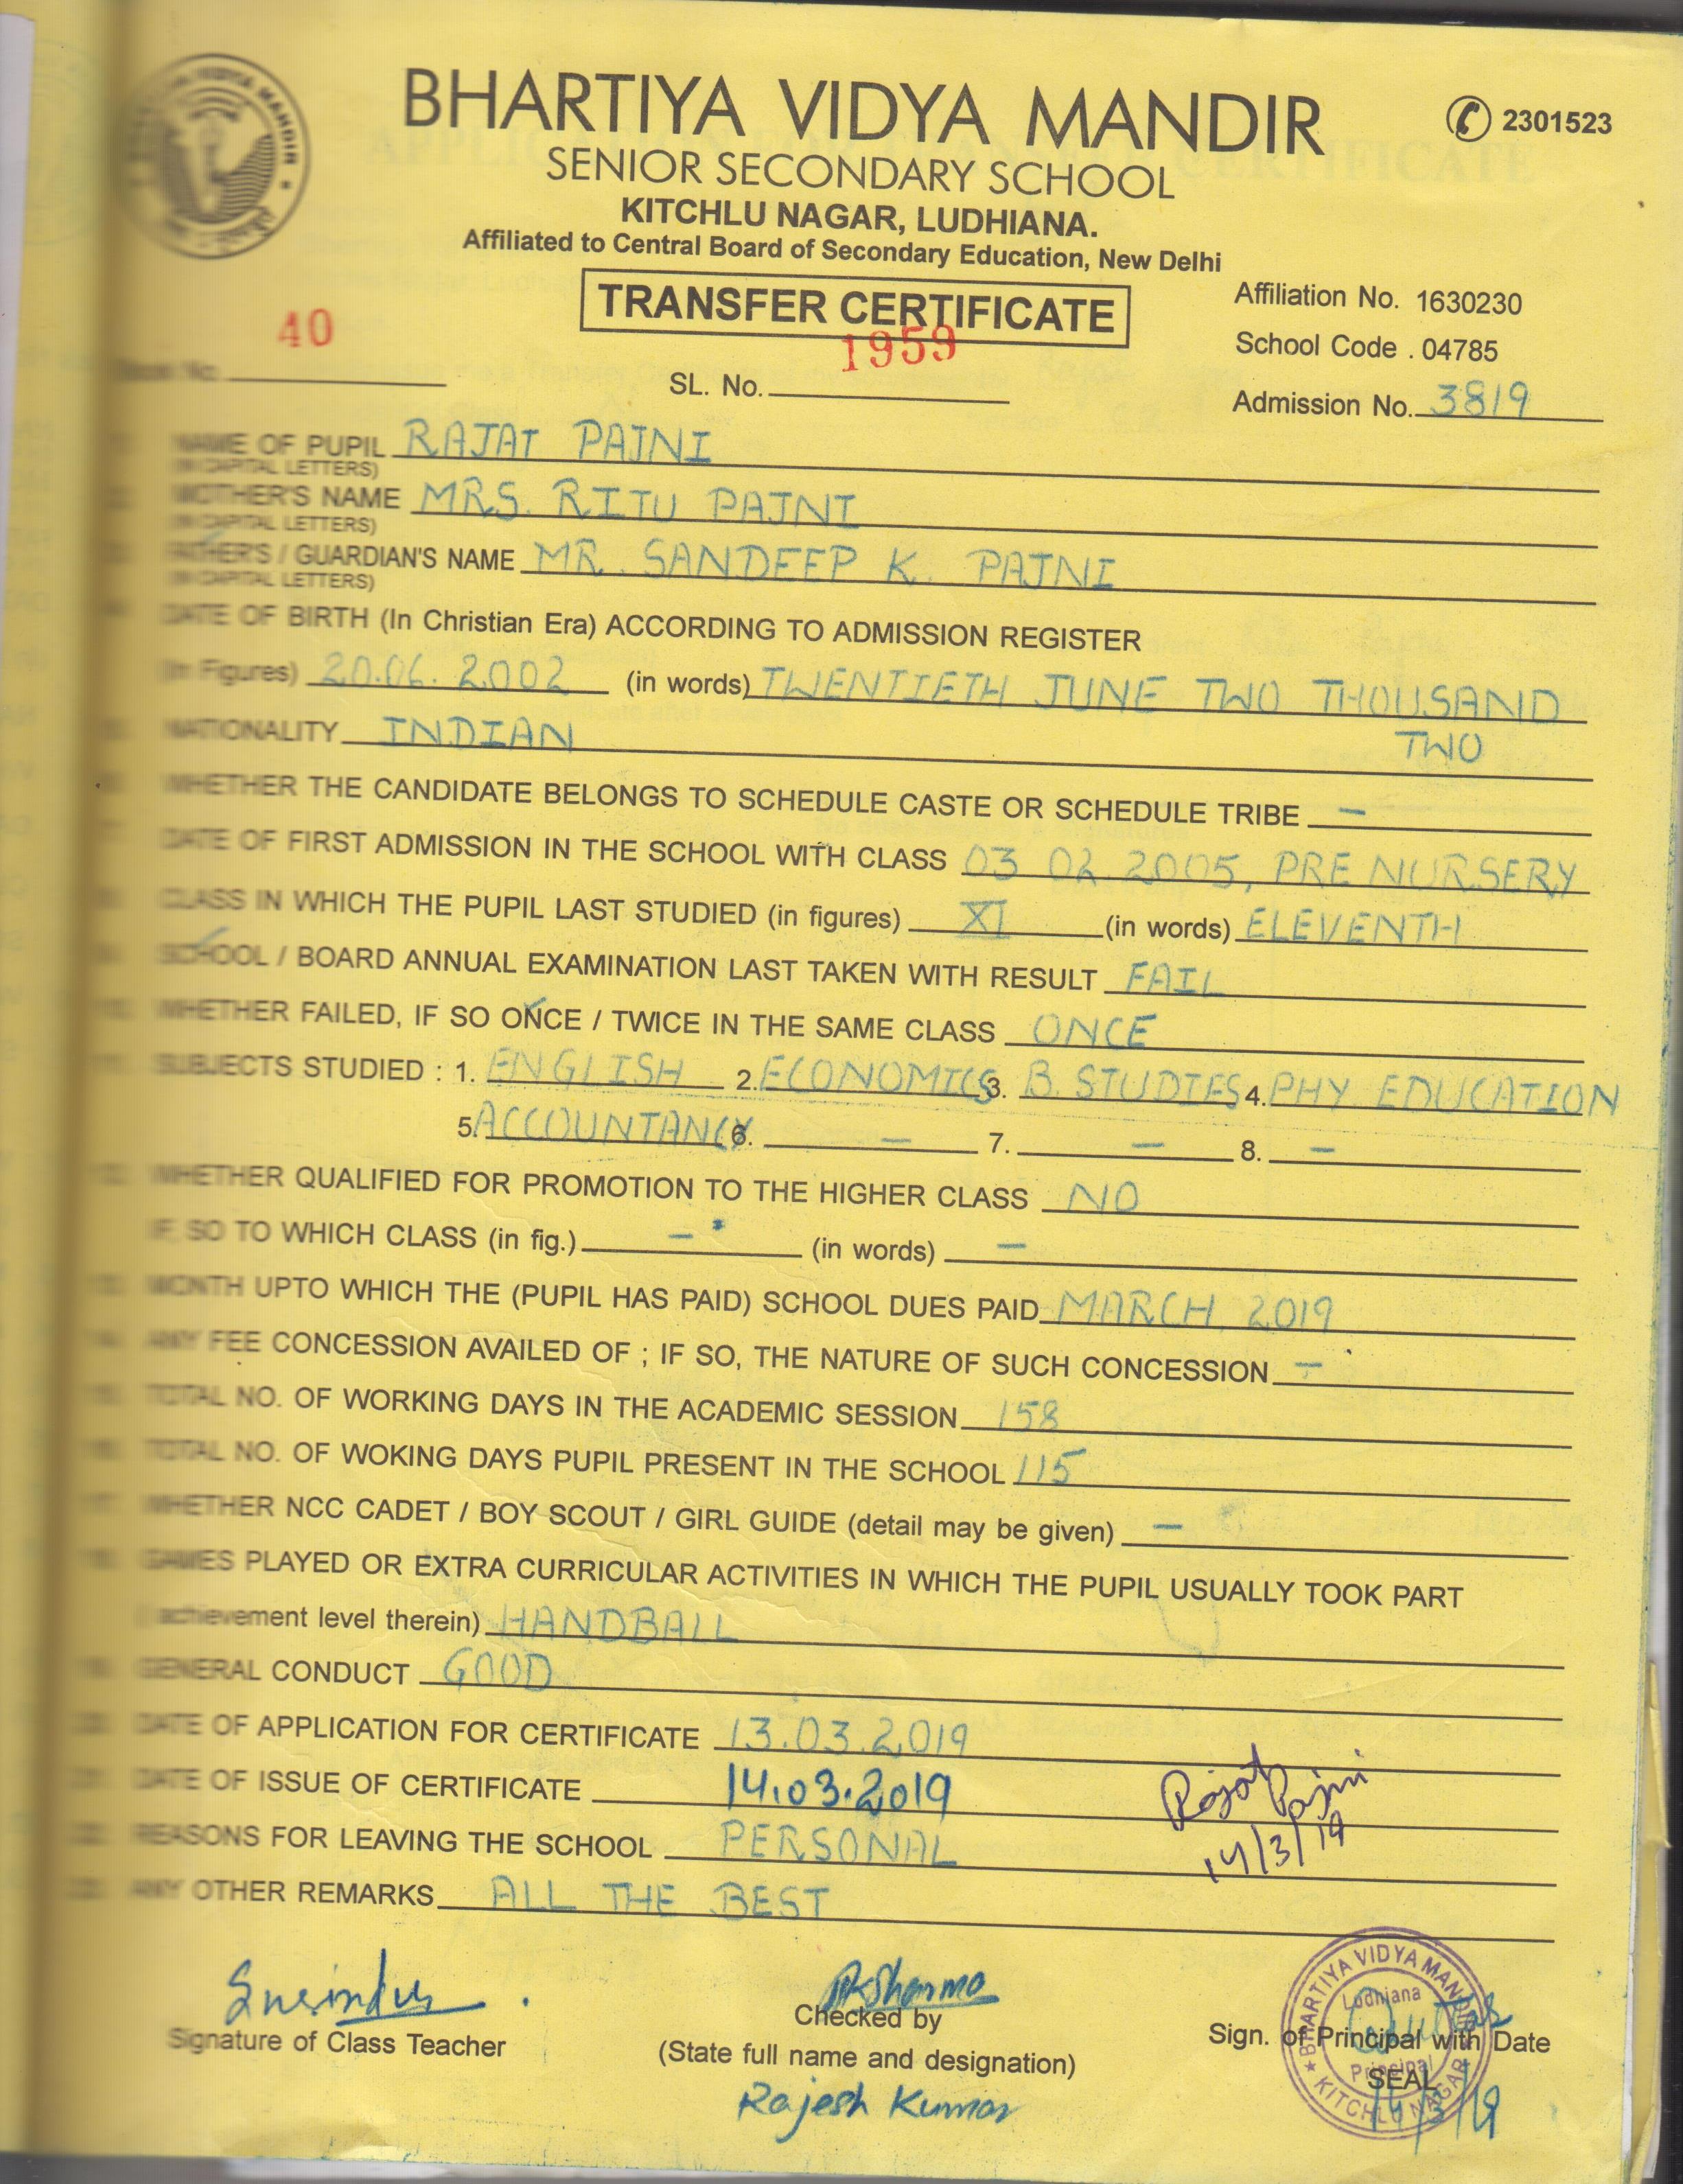 BHARTIYA VIDYA MANDIR
✆ 2301523
SENIOR SECONDARY SCHOOL
KITCHLU NAGAR, LUDHIANA.
Affiliated to Central Board of Secondary Education, New Delhi
TRANSFER CERTIFICATE
Affiliation No. 1630230
School Code . 04785
40
No.
SL. No. 1959
Admission No. 3819
NAME OF PUPIL RAJAT PAJNI
(IN CAPITAL LETTERS)
MOTHER'S NAME MRS. RITU PAJNI
(IN CAPITAL LETTERS)
FATHER'S / GUARDIAN'S NAME MR. SANDEEP K. PAJNI
(IN CAPITAL LETTERS)
DATE OF BIRTH (In Christian Era) ACCORDING TO ADMISSION REGISTER
(In Figures) 20.06.2002 (in words) TWENTIETH JUNE TWO THOUSAND
TWO
NATIONALITY INDIAN
WHETHER THE CANDIDATE BELONGS TO SCHEDULE CASTE OR SCHEDULE TRIBE —
DATE OF FIRST ADMISSION IN THE SCHOOL WITH CLASS 03 02.2005, PRE NURSERY
CLASS IN WHICH THE PUPIL LAST STUDIED (in figures) XI (in words) ELEVENTH
SCHOOL / BOARD ANNUAL EXAMINATION LAST TAKEN WITH RESULT FAIL
WHETHER FAILED, IF SO ONCE / TWICE IN THE SAME CLASS ONCE
SUBJECTS STUDIED : 1. ENGLISH 2. ECONOMICS 3. B. STUDIES 4. PHY. EDUCATION
5. ACCOUNTANCY 6. — 7. — 8. —
WHETHER QUALIFIED FOR PROMOTION TO THE HIGHER CLASS NO
IF SO TO WHICH CLASS (in fig.) — (in words) —
MONTH UPTO WHICH THE (PUPIL HAS PAID) SCHOOL DUES PAID MARCH, 2019
ANY FEE CONCESSION AVAILED OF ; IF SO, THE NATURE OF SUCH CONCESSION —
TOTAL NO. OF WORKING DAYS IN THE ACADEMIC SESSION 158
TOTAL NO. OF WOKING DAYS PUPIL PRESENT IN THE SCHOOL 115
WHETHER NCC CADET / BOY SCOUT / GIRL GUIDE (detail may be given) —
GAMES PLAYED OR EXTRA CURRICULAR ACTIVITIES IN WHICH THE PUPIL USUALLY TOOK PART
(achievement level therein) HANDBALL
GENERAL CONDUCT GOOD
DATE OF APPLICATION FOR CERTIFICATE 13.03.2019
DATE OF ISSUE OF CERTIFICATE 14.03.2019
Rajat Pajni
14/3/19
REASONS FOR LEAVING THE SCHOOL PERSONAL
ANY OTHER REMARKS ALL THE BEST
Signature of Class Teacher
Sharma
Checked by
(State full name and designation)
Rajesh Kumar
Sign. of Principal with Date
SEAL
14/3/19
BHARTIYA VIDYA MANDIR
KITCHLU NAGAR
Ludhiana
Principal